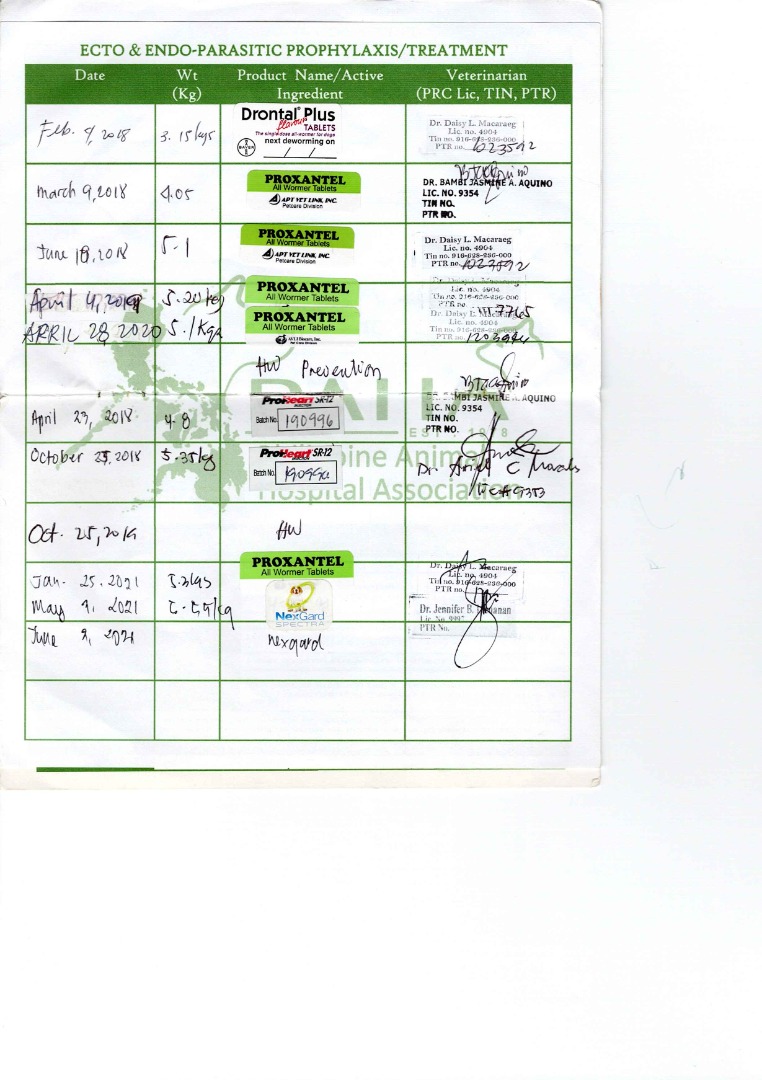 ECTO & ENDO-PARASITIC PROPHYLAXIS/TREATMENT
Date Wt (Kg) Product Name/Active Ingredient Veterinarian (PRC Lic, TIN, PTR)
Drontal Plus
flavour TABLETS
The single dose all-wormer for dogs
next deworming on
BAYER
Feb. 9, 2018 3.15 kgs
Dr. Daisy L. Macaraeg
Lic. no. 4904
Tin no. 916-628-236-000
PTR no. 1023592
March 9, 2018 4.05
PROXANTEL
All Wormer Tablets
APT VET LINK, INC.
Petcare Division
DR. BAMBI JASMINE A. AQUINO
LIC. NO. 9354
TIN NO.
PTR NO.
June 18, 2018 5.1
PROXANTEL
All Wormer Tablets
APT VET LINK, INC.
Petcare Division
Dr. Daisy L. Macaraeg
Lic. no. 4904
Tin no. 916-628-236-000
PTR no. 1023592
April 4, 2019 5.20 kg
PROXANTEL
All Wormer Tablets
Lic. no. 4904
Tin no. 916-628-236-000
PTR no.
APRIL 28 2020 5.1 Kgs
PROXANTEL
All Wormer Tablets
Dr. Daisy L. Macaraeg
Lic. no. 4904
Tin no. 916-628-236-000
PTR no.
HW Prevention
PAHA
EST. 1
Philippine Animal
Hospital Association
April 23, 2018 4.8
ProHeart SR-12
Batch No. 190996
DR. BAMBI JASMINE A. AQUINO
LIC. NO. 9354
TIN NO.
PTR NO.
October 25, 2018 5.35kg
ProHeart SR-12
Batch No.
Dr.
Oct. 25, 2019 HW
Jan. 25. 2021
PROXANTEL
All Wormer Tablets
Dr. Daisy L. Macaraeg
Lic. no. 4904
Tin no. 916-628-236-000
PTR no.
May 9, 2021
NexGard
SPECTRA
Dr. Jennifer B.
Lic No. 9997
PTR No.
June 9, 2021 nexgard